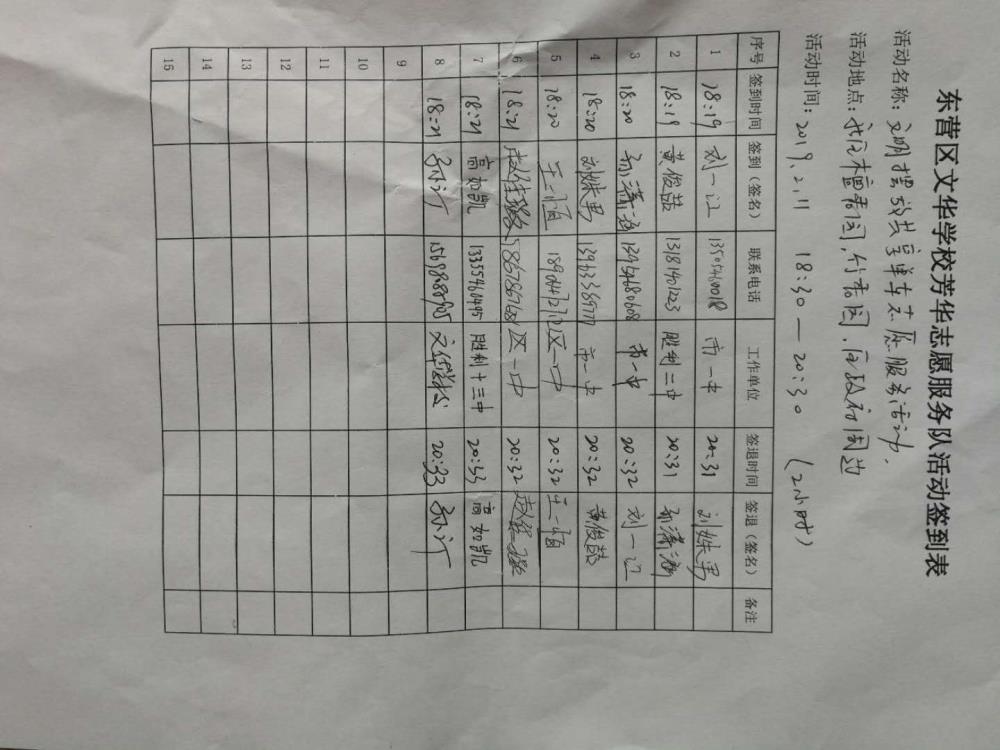 东营区文华学校芳华志愿服务队活动签到表
活动名称：文明摆放共享单车志愿服务活动.
活动地点：我区檀香园,竹香园,区政府周边
活动时间：2019.2.11 18:30—20:30 (2小时)
序号 签到时间 签到（签名） 联系电话 工作单位 签退时间 签退（签名） 备注
1 18:19 刘一江 市一中 20:31 刘姝男
2 18:19 黄俊喆 13181901223 胜利二中 20:31
3 18:20 13954680608 市一中 20:32 刘一江
4 18:20 刘姝男 市一中 20:32 黄俊喆
5 18:20 王一恒 区一中 20:32 王一恒
6 18:21 区一中 20:32
7 18:21 高如凯 13355460495 胜利十三中 20:33 高如凯
8 18:21 孙汀 文华学校 20:33 孙汀
9
10
11
12
13
14
15